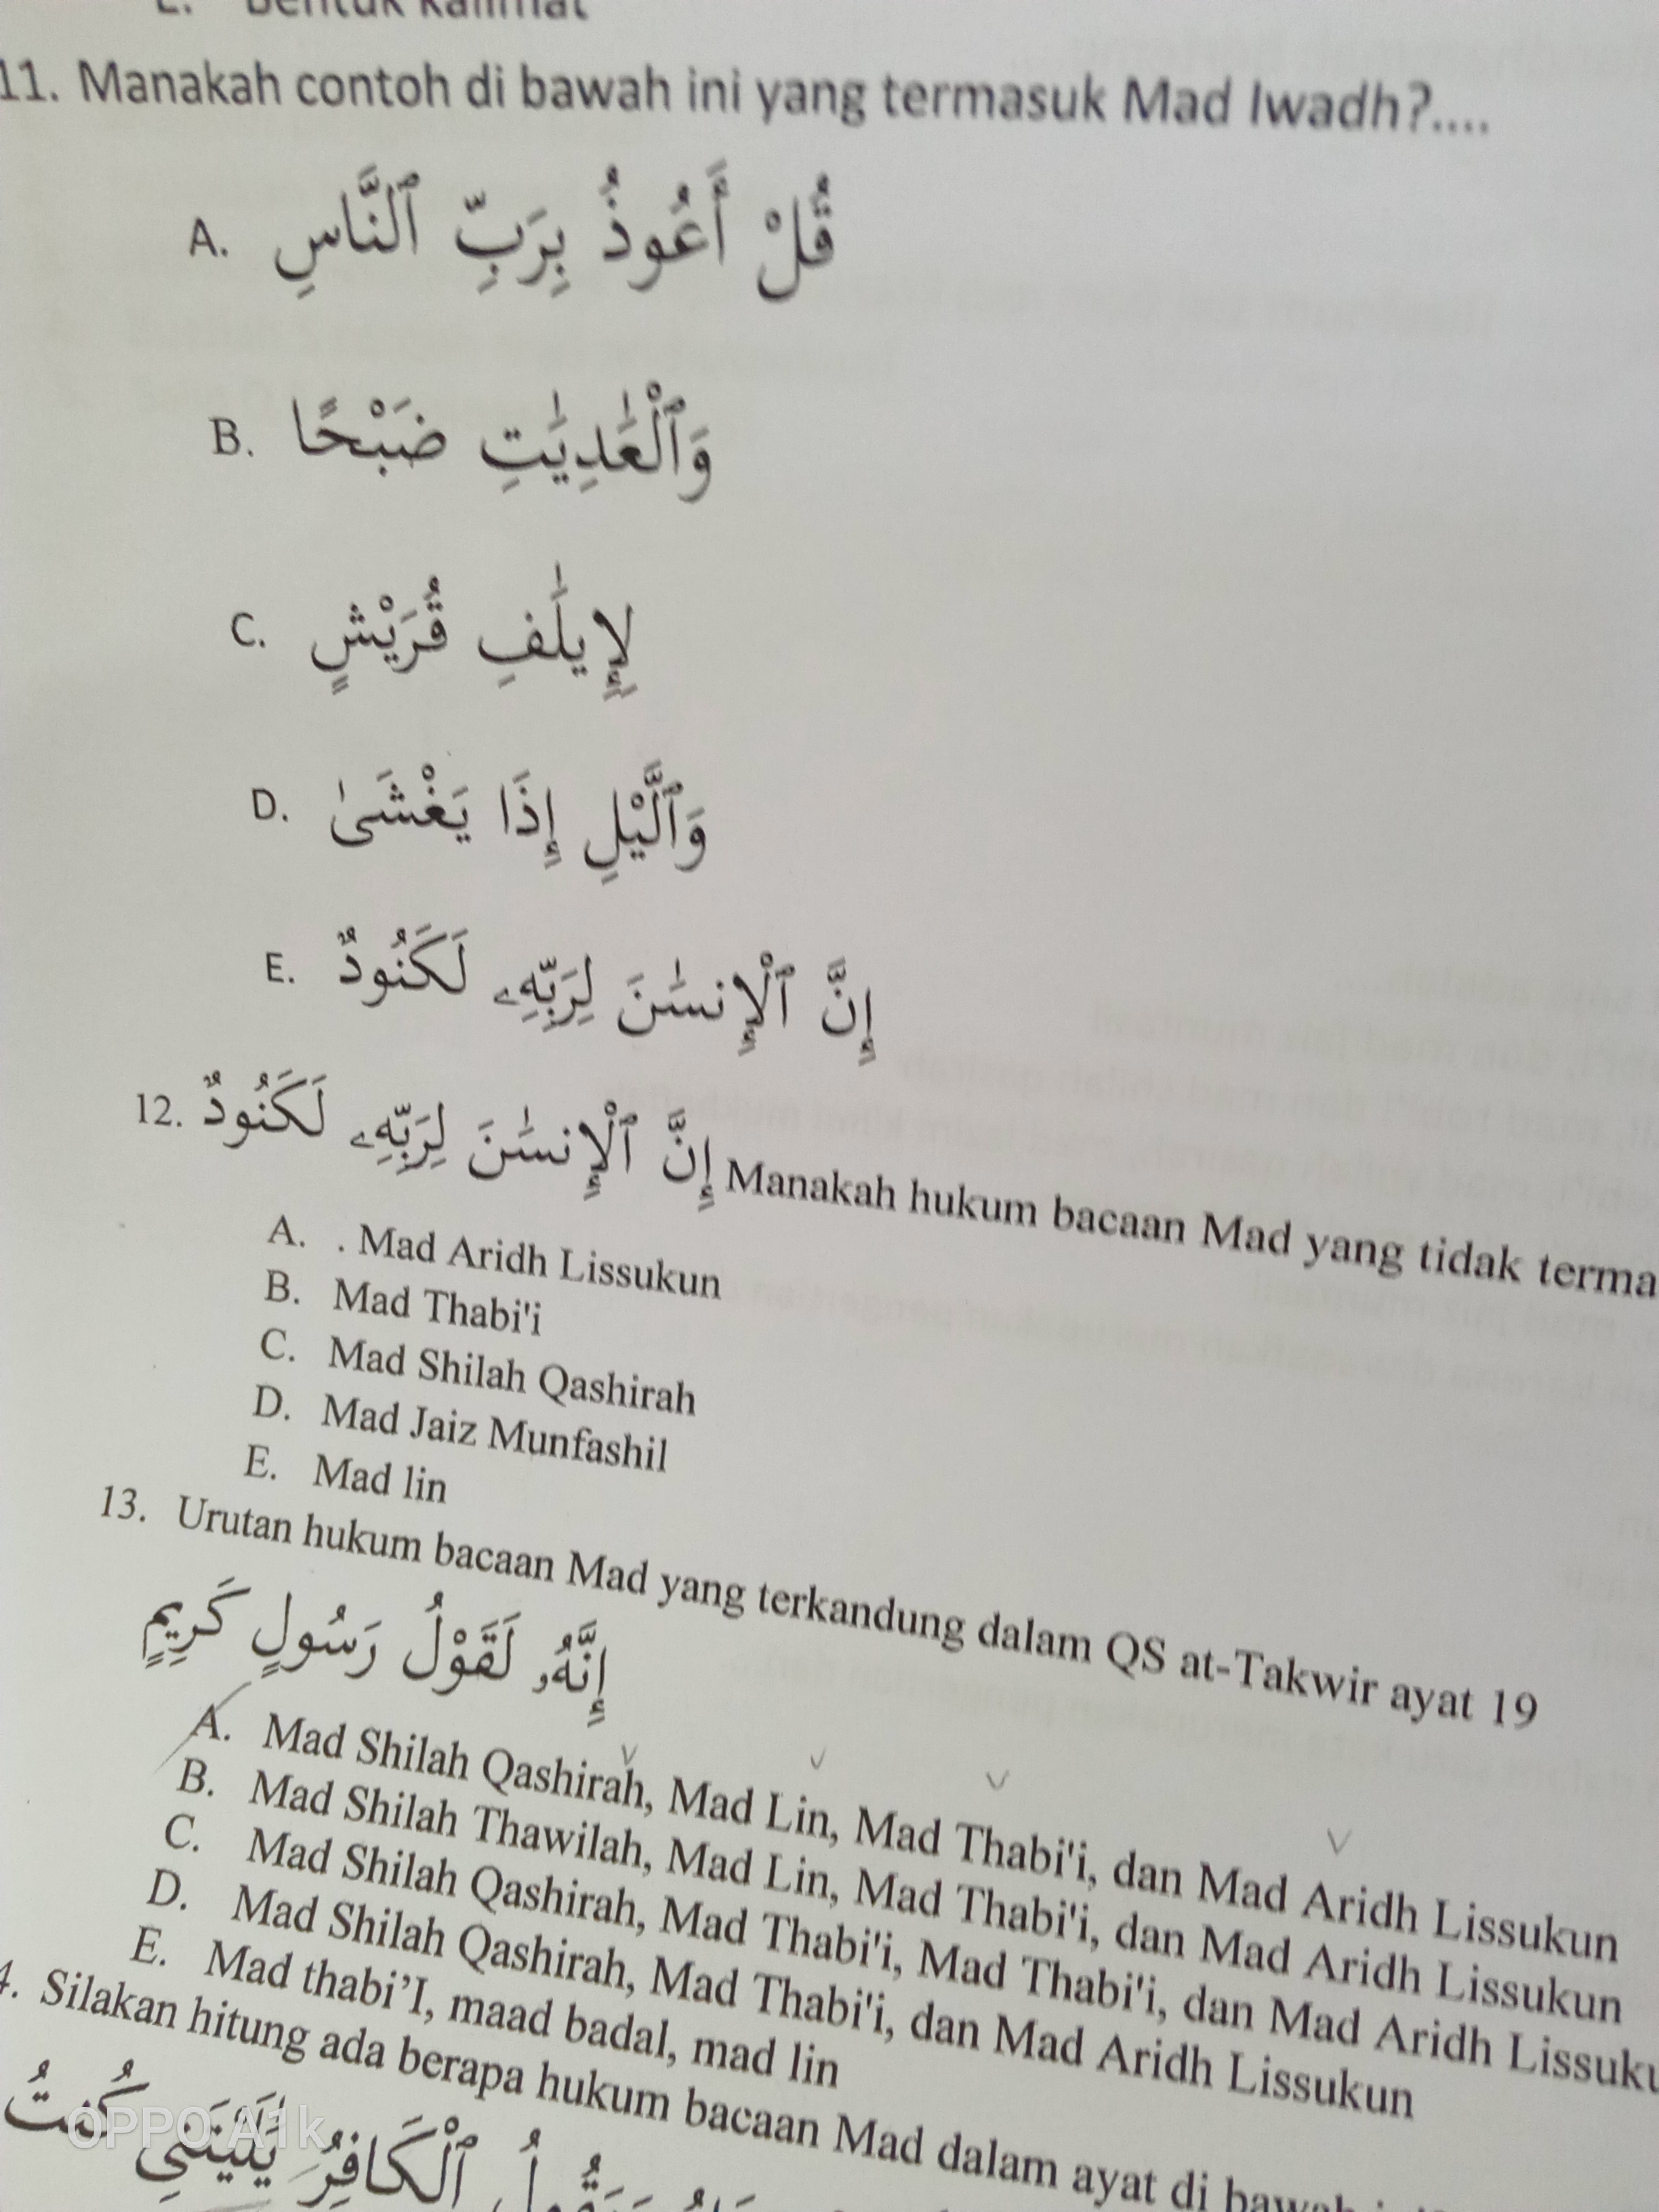 E. Bentuk Kalimat
11. Manakah contoh di bawah ini yang termasuk Mad Iwadh?....
A. قُلْ أَعُوذُ بِرَبِّ ٱلنَّاسِ
B. وَٱلْعَٰدِيَٰتِ ضَبْحًا
C. لِإِيلَٰفِ قُرَيْشٍ
D. وَٱلَّيْلِ إِذَا يَغْشَىٰ
E. إِنَّ ٱلْإِنسَٰنَ لِرَبِّهِۦ لَكَنُودٌ
12. إِنَّ ٱلْإِنسَٰنَ لِرَبِّهِۦ لَكَنُودٌ Manakah hukum bacaan Mad yang tidak
A. . Mad Aridh Lissukun
B. Mad Thabi'i
C. Mad Shilah Qashirah
D. Mad Jaiz Munfashil
E. Mad lin
13. Urutan hukum bacaan Mad yang terkandung dalam QS at-Takwir ayat 19
إِنَّهُۥ لَقَوْلُ رَسُولٍ كَرِيمٍ
A. Mad Shilah Qashirah, Mad Lin, Mad Thabi'i, dan Mad Aridh Lissukun
B. Mad Shilah Thawilah, Mad Lin, Mad Thabi'i, dan Mad Aridh Lissukun
C. Mad Shilah Qashirah, Mad Thabi'i, Mad Thabi'i, dan Mad Aridh
D. Mad Shilah Qashirah, Mad Thabi'i, dan Mad Aridh Lissukun
E. Mad thabi’I, maad badal, mad lin
4. Silakan hitung ada berapa hukum bacaan Mad dalam ayat di
ٱلْكَافِرُ يَٰلَيْتَنِى كُنتُ
OPPO A1k